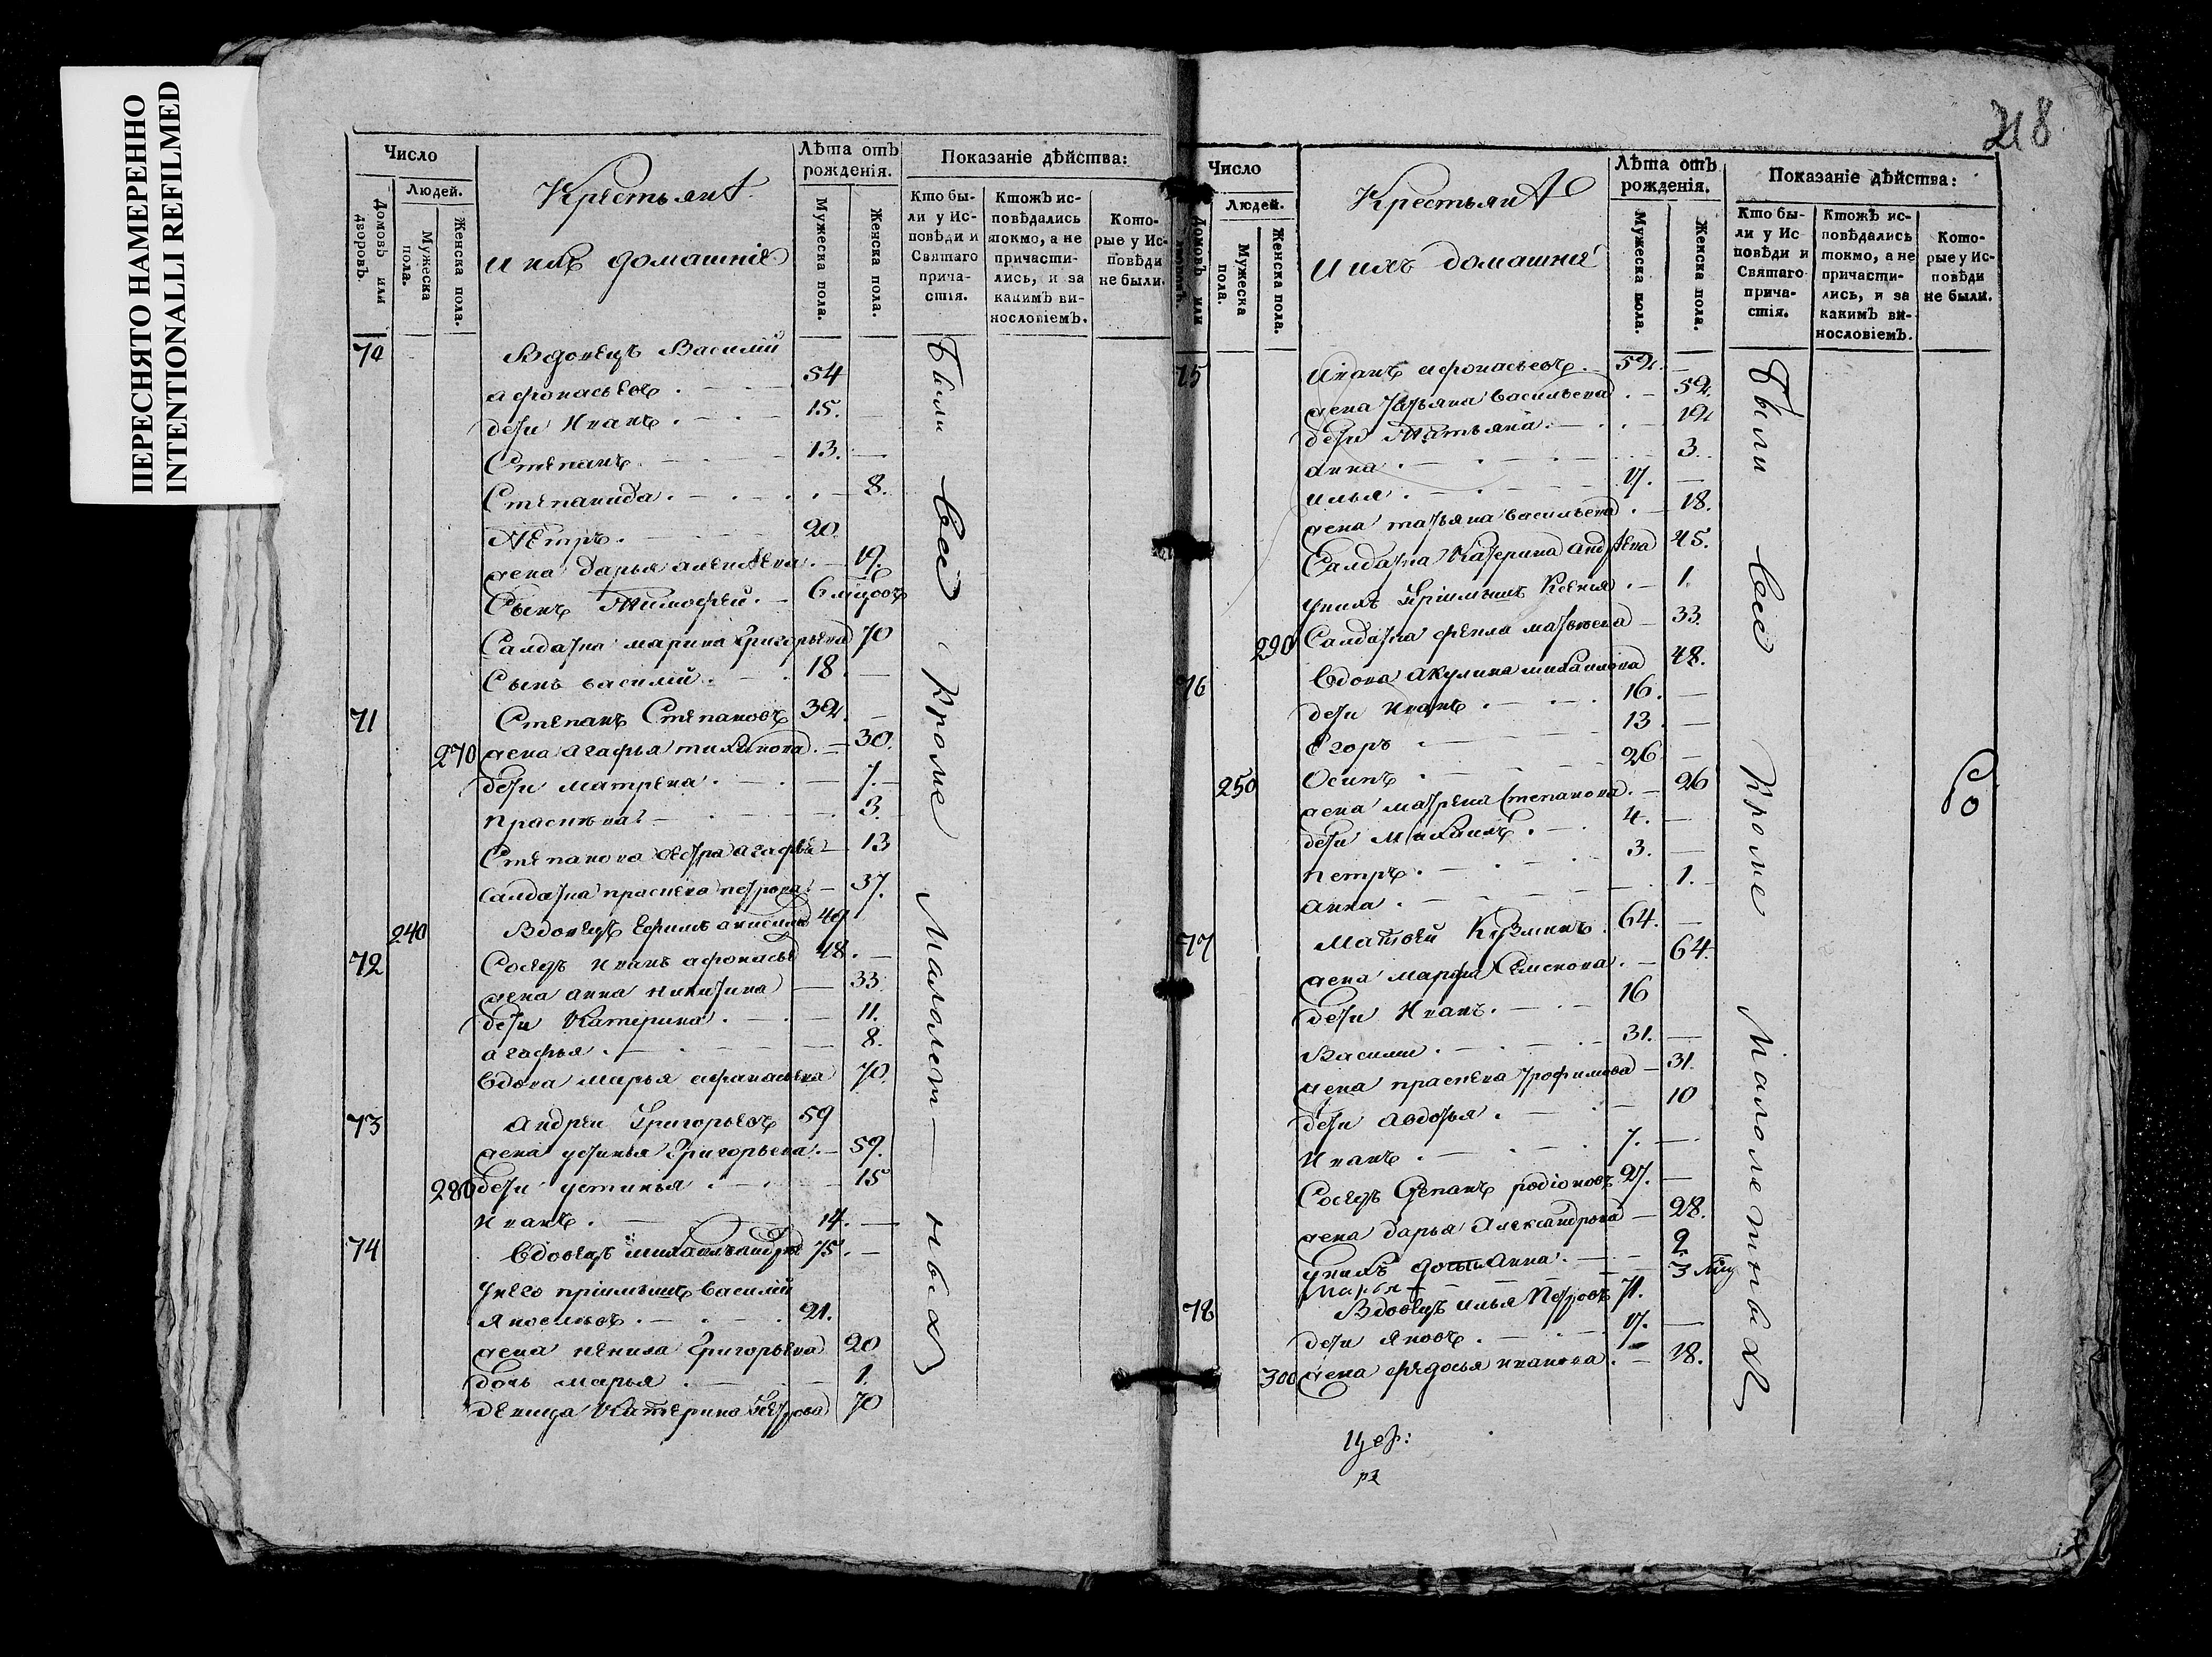 ПЕРЕСНЯТО НАМЕРЕННО
INTENTIONALLI REFILMED
Число
Людей.
Домовъ или дворовъ.
Мужеска пола.
Женска пола.
Крестьяне
и ихъ домашніе
Лѣта отъ рожденія.
Мужеска пола.
Женска пола.
Показаніе дѣйства:
Кто бы-
ли у Ис-
повѣди и
Святаго
прича-
стія.
Ктожъ ис-
повѣдались
токмо, а не
причасти-
лись, и за
какимъ ви-
нословіемъ.
Кото-
рые у Ис-
повѣди
не были.
70 Вдовецъ Василій
афонасьевъ 54
дети Иванъ 15.
Степанъ 13.
Степанида 8.
Петръ 20.
жена дарья 19.
Сынъ Тимофей 6 мцовъ
Салдатка марина Григорьева 70
Сынъ василій 18.
71 Степанъ Степановъ 32.
270 жена агафья 30.
дети матрена 7.
прасковья 3.
Степанова сестра агафья 13
салдатка петрова 37.
240 Вдовецъ Ефимъ 49
72 Соседъ Иванъ афонасье 48.
жена анна никитина 33
дети Катерина 11.
агафья 8.
вдова марья афанасьева 70.
73 Андрей Григорьевъ 59
жена устинья Григорьева 59.
280 дети устинья 15
Иванъ 14.
74 Вдовецъ 75.
у него пріимышъ василій
Яковлевъ 21.
жена Григорьева 20
дочь марья 1.
девица Катерина Петрова 70
Были все кроме Малолетныхъ
218
Число
Людей.
Домовъ или дворовъ.
Мужеска пола.
Женска пола.
Крестьяне
и ихъ домашніе
Лѣта отъ рожденія.
Мужеска пола.
Женска пола.
Показаніе дѣйства:
Кто бы-
ли у Ис-
повѣди и
Святаго
прича-
стія.
Ктожъ ис-
повѣдались
токмо, а не
причасти-
лись, и за
какимъ ви-
нословіемъ.
Кото-
рые у Ис-
повѣди
не были.
75 Иванъ афонасьевъ 52.
жена татьяна васильева 52.
дети Татьяна 12
анна 3.
илья 17.
жена татьяна васильева 18.
Салдатка Катерина андреева 45.
у нихъ пріимышъ Ксенія 1.
290 Салдатка фекла матвеева 33.
76 вдова акулина михаилова 48.
дети Иванъ 16.
Егоръ 13.
Осипъ 26
250 жена матрена Степанова 26
дети Михаилъ 4.
петръ 3.
анна 1.
77 Матвей Кузминъ 64.
жена марфа Семенова 64.
дети Иванъ 16
Василій 31.
жена трофимова 31.
дети авдотья 10
Иванъ 7.
Соседъ Степанъ родіоновъ 27.
жена дарья Александрова 28.
у нихъ дочь Анна 2.
Марья 3 мц
78 Вдовецъ илья Петровъ 71.
дети Яковъ 17.
300 жена федосья иванова 18.
Были все кроме Малолетныхъ